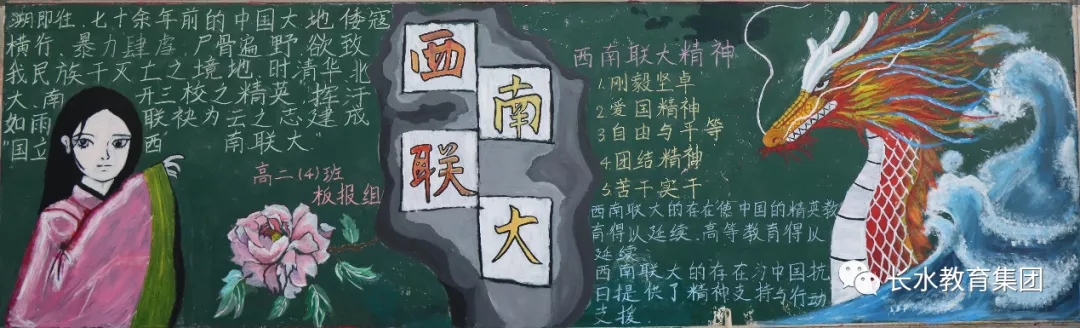 溯即往,七十余年前的中国大地倭寇
横行,暴力肆虐,尸骨遍野,欲致
我民族于灭亡之境地,时清华北
大、南开三校之精英,挥汗
如雨 联袂为云之志建成
"国立西南联大"
高二(4)班
板报组
西
南
联
大
西南联大精神
1.刚毅坚卓
2.爱国精神
3.自由与平等
4.团结精神
5.苦干实干
西南联大的存在使中国的精英教
育得以延续、高等教育得以
延续
西南联大的存在为中国抗
日提供了精神支持与行动
支援.
长水教育集团